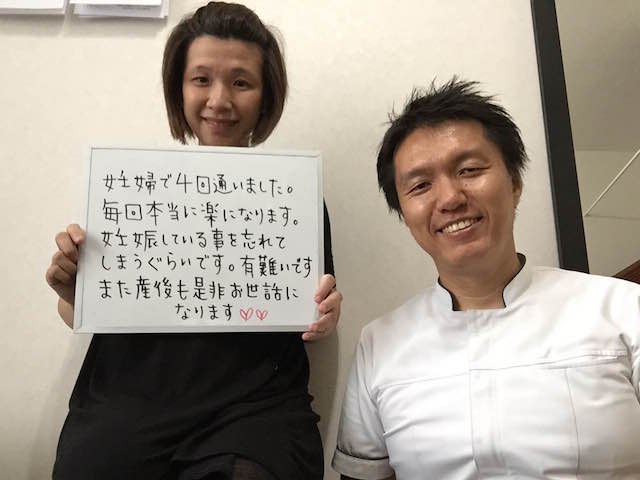 妊婦で4回通いました。
毎回本当に楽になります。
妊娠している事を忘れて
しまうぐらいです。有難いです
また産後も是非お世話に
なります♡♡